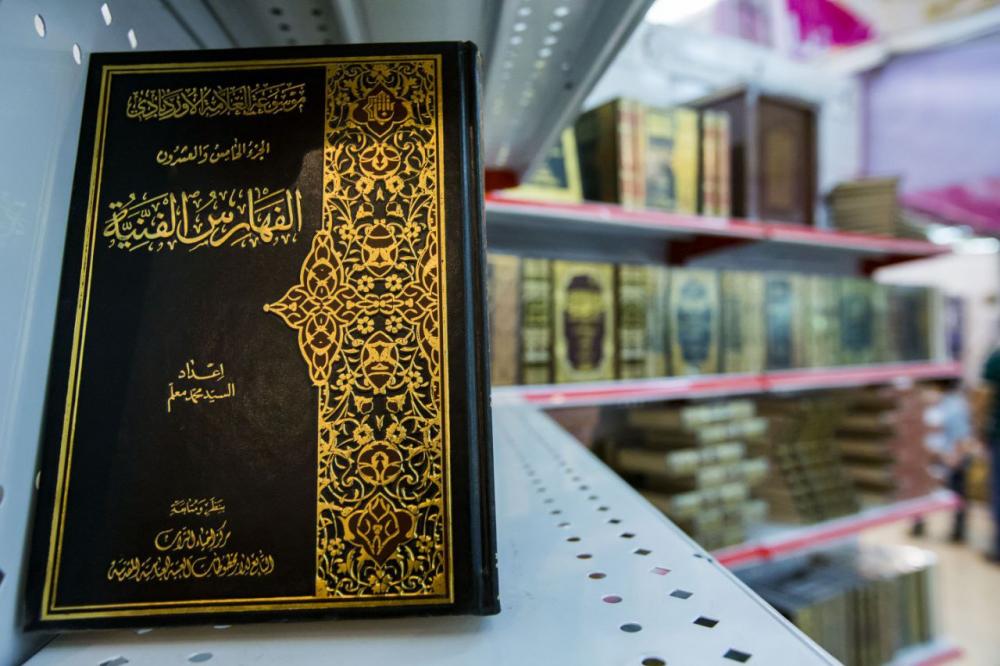 موسوعة العلامة الأوردبادي
الجزء الخامس والعشرون
الفهارس الفنية
إعداد
السيد محمد معلم
بنظر ومتابعة
مركز إحياء التراث
التابع لدار مخطوطات العتبة العباسية المقدسة